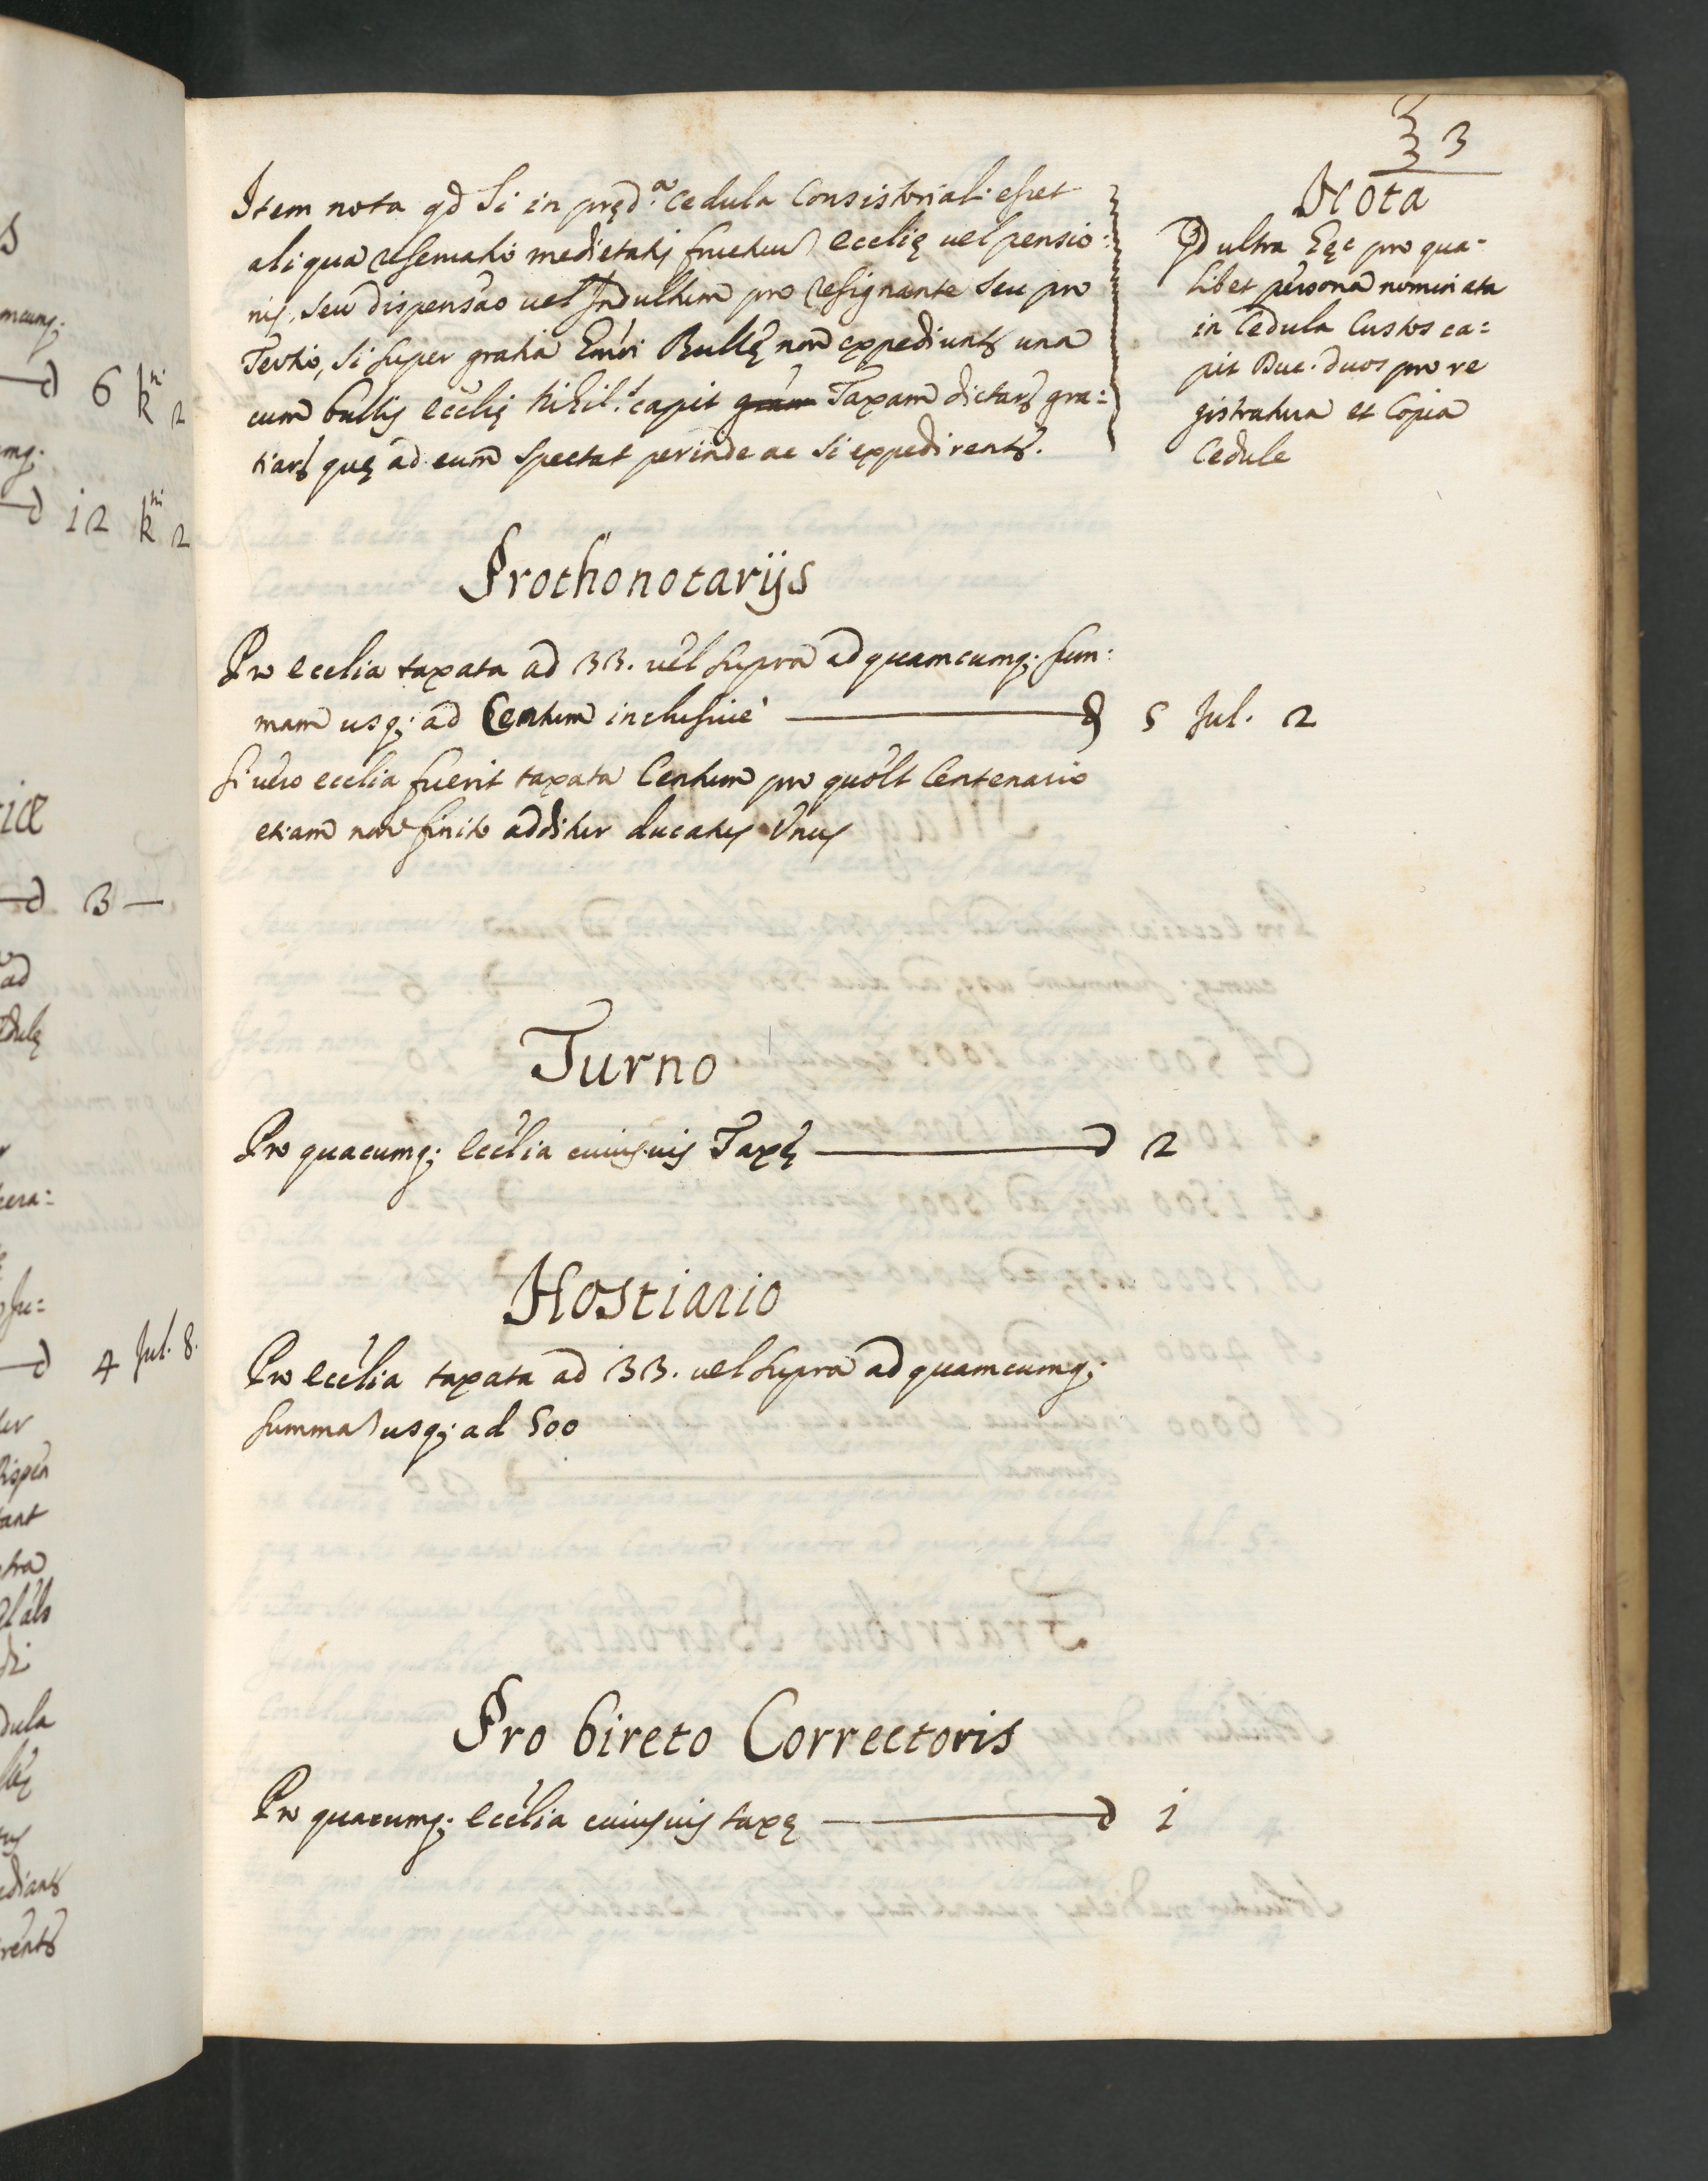 3
Item nota qd Si in pręd.ª Cedula Consistoriali esset
aliqua reseruatio medietatis fructuu ecclię uel pensio:
nis, seu dispensao uel Indultum pro resignante seu pro
Tertio, si super gratia Bullę non expediunts una
cum bullis ecclię nihil.s capit Taxam dictars gra:
tiars quę ad eum spectat perinde ac si expedirents.
Nota
Qd ultra pro qua-
libet persona nominata
in Cedula Custos ca=
pit Duc. duos pro re
gistratura et Copia
Cedule
Prothonotarijs
Pro ecclia taxata ad 33. uel supra ad quamcumq; sum:
mam usq; ad Centum inclusiue ——— d 5 Jul. 2
si uero ecclia fuerit taxata Centum pro quolt Centenario
etiam non finito additur ducatus Vnus
Turno
Pro quacumq; ecclia cuiusuis Taxę ——— d 2
Hostiario
Pro ecclia taxata ad 33. uel supra ad quamcumq;
summa usq; ad 500
Pro bireto Correctoris
Pro quacumq; ecclia cuiusuis taxę ——— d 1
6 kni 2
12 kni 2
d 3 —
d 4 Jul. 8.